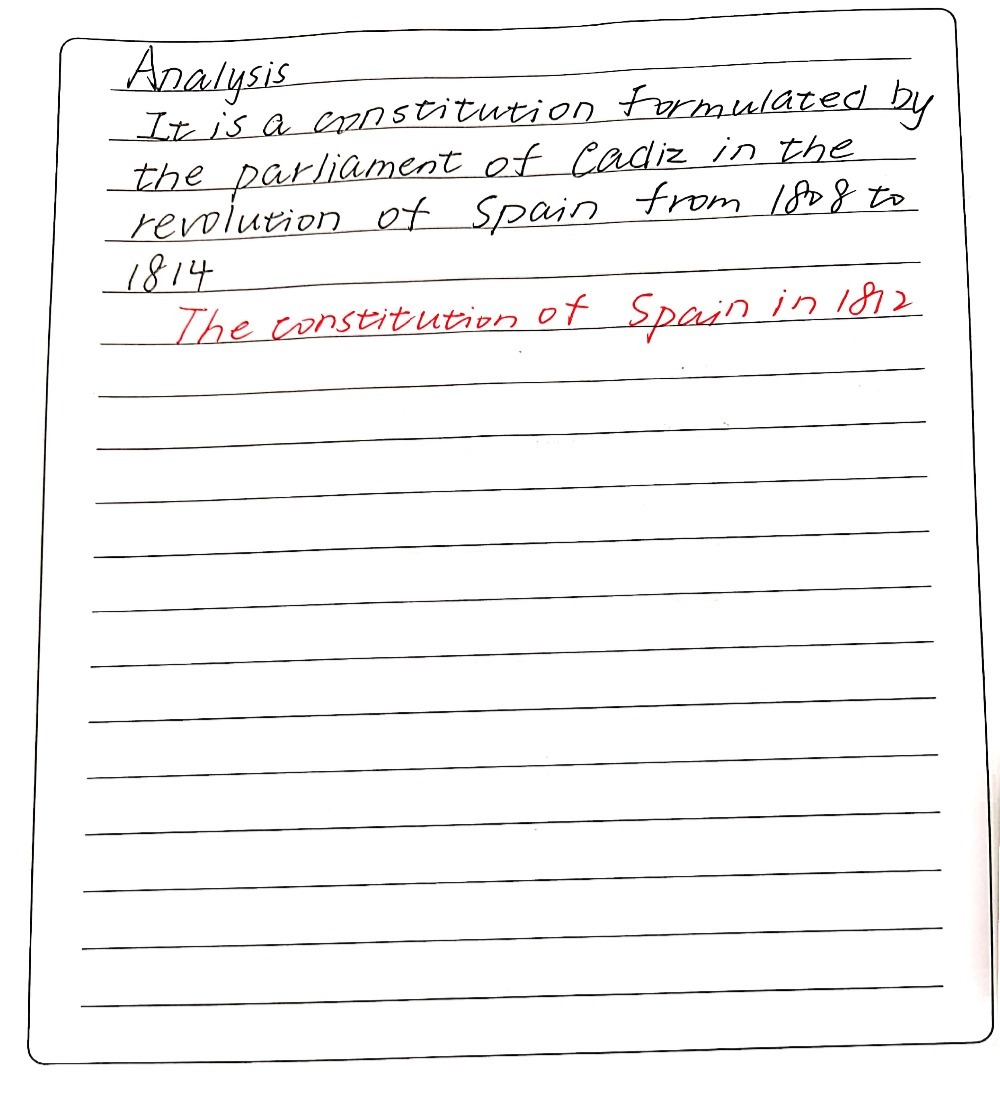 Analysis
It is a constitution formulated by
the parliament of Cadiz in the
revolution of Spain from 1808 to
1814
The constitution of Spain in 1812